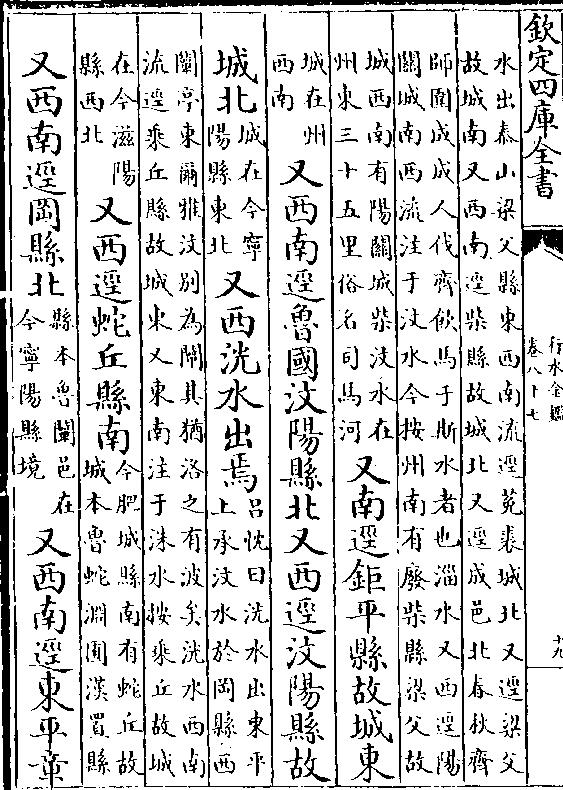 欽定四庫全書
行水金鑑
卷八十七
十九
水出泰山梁父縣東西南流逕菟裘城北又逕梁父
故城南又西南逕柴縣故城北又逕成邑北春秋齊
師圍成成人伐齊飲馬于斯水者也淄水又西逕陽
關城南西流注于汶水今按州南有廢柴縣梁父故
城西南有陽關城柴汶水在
州東三十五里俗名司馬河
又南逕鉅平縣故城東
城在州
西南
又西南逕魯國汶陽縣北又西逕汶陽縣故
城北
城在今寧
陽縣東北
又西洸水出焉
呂忱曰洸水出東平
上承汶水於岡縣西
闡亭東爾雅汶別為闡其猶洛之有波矣洸水西南
流逕乘丘縣故城東又東南注于洙水按乘丘故城
在今滋陽
縣西北
又西逕蛇丘縣南
今肥城縣南有蛇丘故
城本魯蛇淵囿漢置縣
又西南逕岡縣北
縣本魯闡邑在
今寧陽縣境
又西南逕東平章